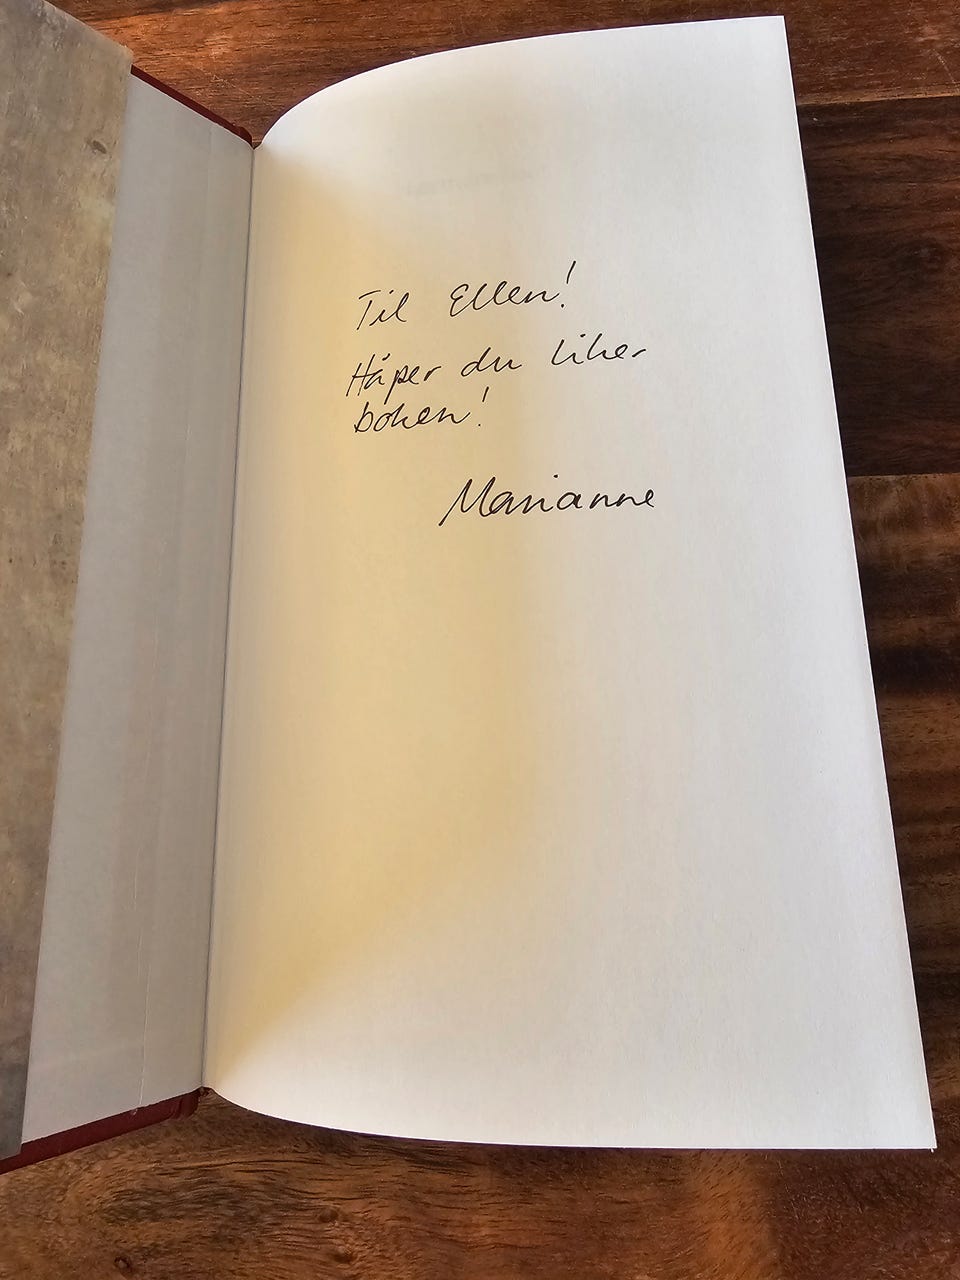 Til Ellen!
Håper du liker
boken!
Marianne